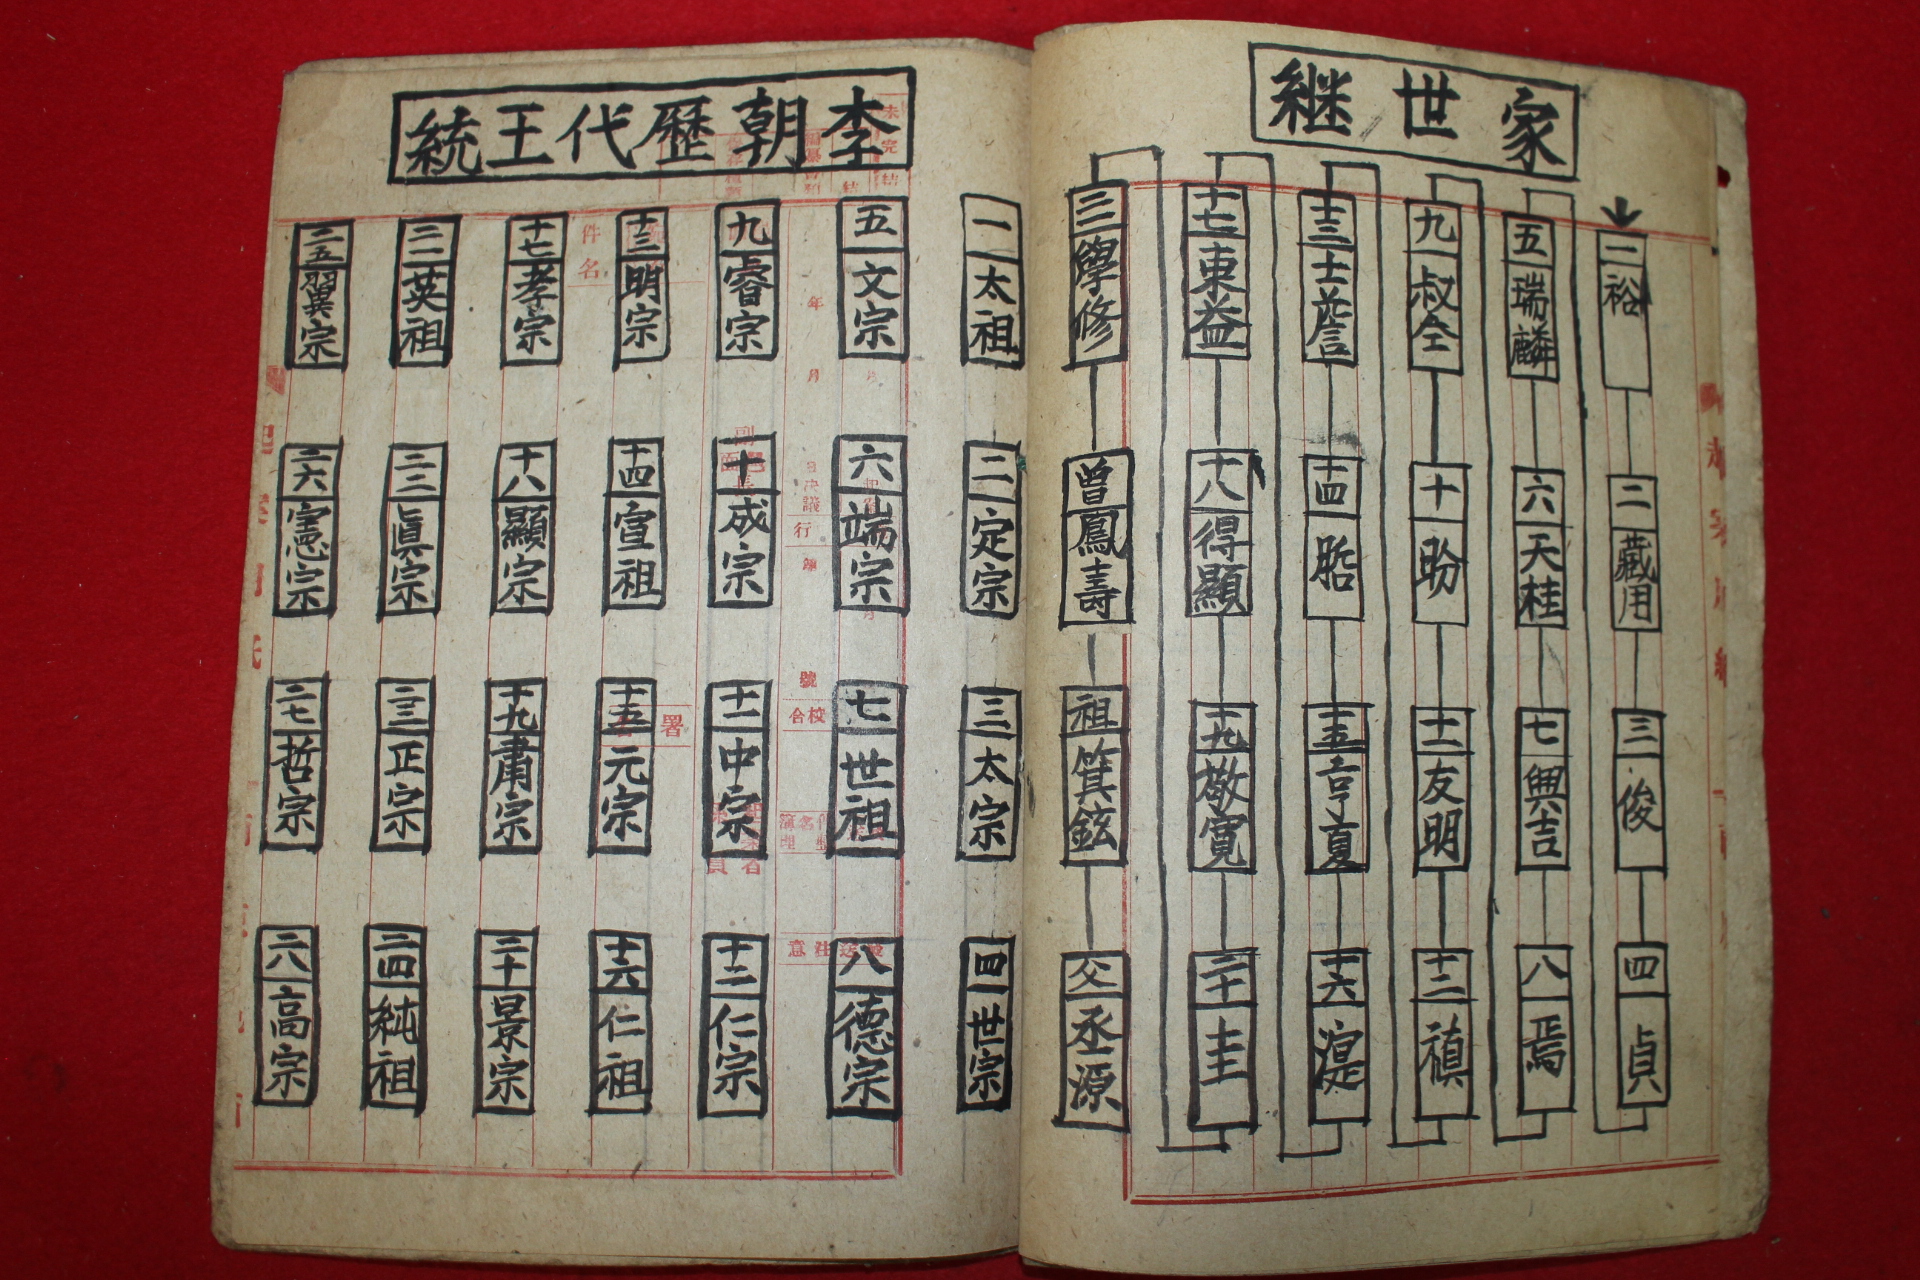 家世継
一 裕
二 藏用
三 俊
四 貞
五 瑞麟
六 天桂
七 興吉
八 焉
九 叔仝
十 昐
十一 友明
十二 禛
十三 士詹
十四
十五 亨夏
十六 湜
十七 東益
十八 得顯
十九 敬寛
二十 圭
二一 學修
曽 鳳壽
祖 箕鉉
父 丞源
李朝歷代王統
一 太祖
二 定宗
三 太宗
四 世宗
五 文宗
六 端宗
七 世祖
八 德宗
九 睿宗
十 成宗
十一 中宗
十二 仁宗
十三 明宗
十四 宣祖
十五 元宗
十六 仁祖
十七 孝宗
十八 顯宗
十九 肅宗
二十 景宗
二一 英祖
二二 眞宗
二三 正宗
二四 純祖
二五 翼宗
二六 憲宗
二七 哲宗
二八 高宗
件名
署
年
月
行
號
校合